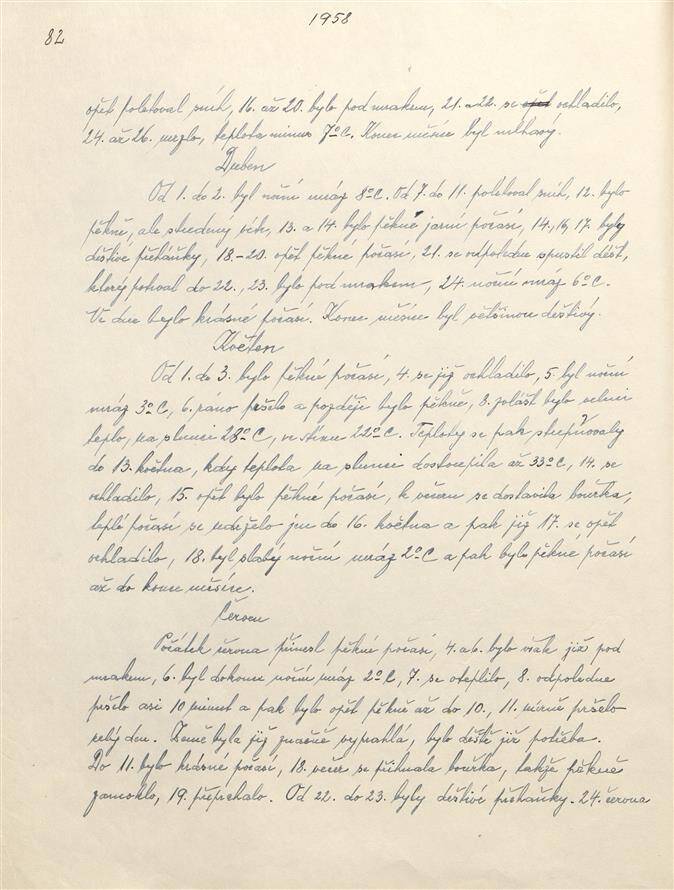 1958
82
opět poletoval sníh, 16. až 20. bylo pod mrakem, 21. a 22. se opět ochladilo,
24. až 26. mrzlo, teplota minus 7°C. Konec měsíce byl mlhavý.
Duben
Od 1. do 2. byl noční mráz 8°C. Od 7. do 11. poletoval sníh, 12. bylo
pěkně, ale studený vítr, 13. a 14. bylo pěkné jarní počasí, 14., 16, 17. byly
deštivé přeháňky, 18.–20. opět pěkné počasí, 21. se odpoledne spustil déšť,
který potrval do 22., 23. bylo pod mrakem, 24. noční mráz 6°C.
Ve dne bylo krásné počasí. Konec měsíce byl většinou deštivý.
Květen
Od 1. do 3. bylo pěkné počasí, 4. se již ochladilo, 5. byl noční
mráz 3°C, 6. ráno pršelo a později bylo pěkně, 8. zvlášť bylo velmi
teplo, na slunci 28°C, ve stínu 22°C. Teploty se pak stupňovaly
do 13. května, kdy teplota na slunci dostoupila až 33°C, 14. se
ochladilo, 15. opět bylo pěkné počasí, k večeru se dostavila bouřka,
teplé počasí se udrželo jen do 16. května a pak již 17. se opět
ochladilo, 18. byl slabý noční mráz 2°C a pak bylo pěkné počasí
až do konce měsíce.
Červen
Počátek června přinesl pěkné počasí, 4. a 6. bylo však již pod
mrakem, 6. byl dokonce noční mráz 2°C, 7. se oteplilo, 8. odpoledne
pršelo asi 10 minut a pak bylo opět pěkně až do 10., 11. mírně pršelo
celý den. Země byla již značně vyprahlá, bylo deště již potřeba.
Do 11. bylo krásné počasí, 18. večer se přihnala bouřka, takže pěkně
zamoklo, 19. přeprchalo. Od 22. do 23. byly deštivé přeháňky. 24. června